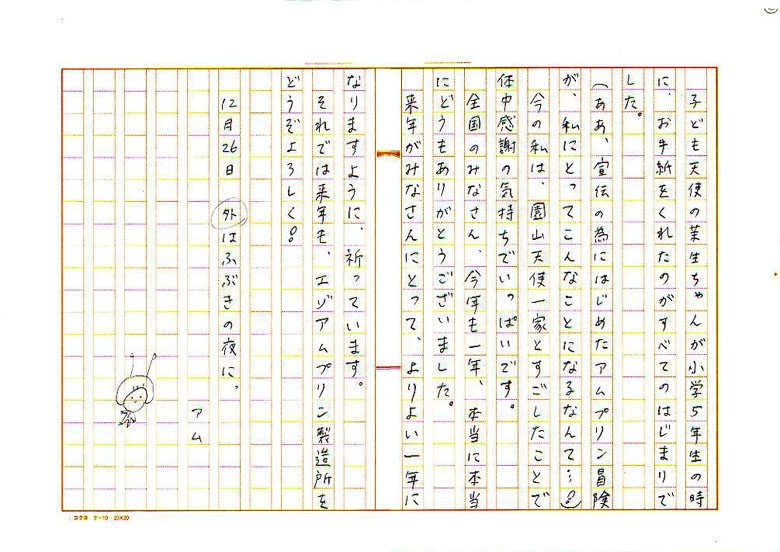 子ども天使の茉生ちゃんが小学5年生の時
に、お手紙をくれたのがすべてのはじまりで
した。
(ああ、宣伝の為にはじめたアムプリン冒険
が、私にとってこんなことになるなんて…!)
今の私は、園山天使一家とすごしたことで
体中感謝の気持ちでいっぱいです。
全国のみなさん、今年も一年、本当に本当
にどうもありがとうございました。
来年がみなさんにとって、よりよい一年に
なりますように、祈っています。
それでは来年も、エゾアムプリン製造所を
どうぞよろしく!
12月26日 外はふぶきの夜に、
アム
コクヨ ケー10 20×20